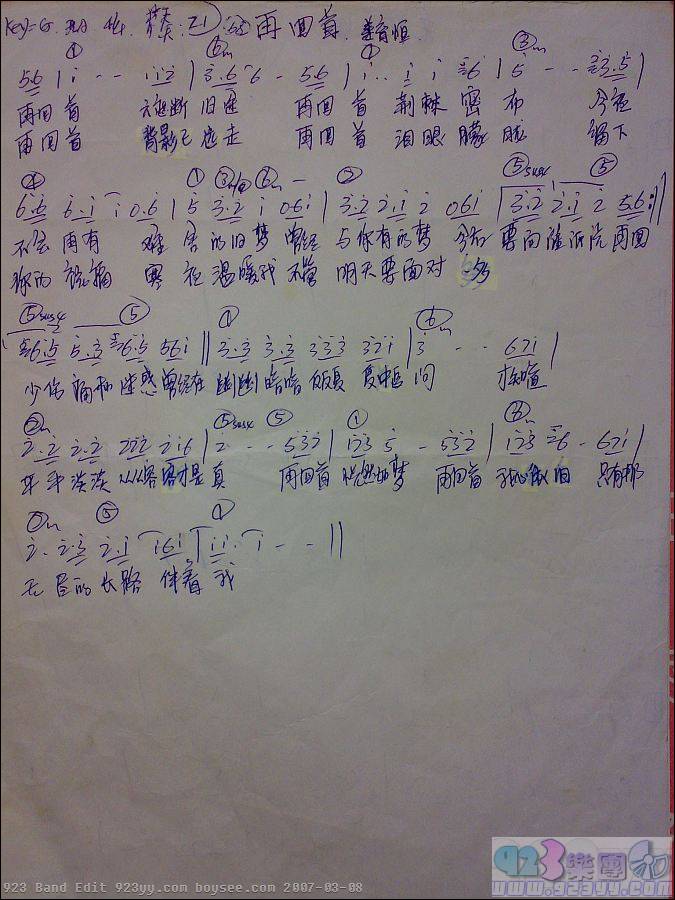 Key=G 再回首 姜育恒
5 6 | i - - i i 2 | 3.6 6 - 5 6 | i.. i i 6 | 5 - - 3.5 |
再回首 云遮断 归途 再回首 荆棘密布 今夜
再回首 背影已远走 再回首 泪眼朦胧 留下
④ ① ③ ⑥m ② ⑤sus4 ⑤
6.6 6.i i 0.6 | 5 3.2 i 06i | 3.2 2.i 2 06i | 3.2 2.i 2 5.6 :||
不会再有 难 舍的旧梦 曾经与你有的梦 今后要向 再回
你的祝福 寒夜温暖我 不管明天要面对 多
⑤sus4 ⑤ ① ⑥m
6.5 5.3 6.5 56i || 3.3 3.3 333 32i | 3 - - 67i |
少伤痛和迷惑 曾经在幽幽暗暗反反复复中 问 才知道
②m ⑤sus4 ⑤ ① ⑥m
2.2 2.2 222 2i6 | 2 - - 532 | i23 5 - 532 | i23 6 - 67i |
平平淡淡从从容容才是真 再回首恍然如梦 再回首我心依旧 只有那
②m ⑤ ①
2. 2.3 2.i i6i | i i. i - - ||
无尽的长路 伴着我
923 Band Edit 923yy.com boysee.com 2007-03-08
923樂團
www.923yy.com